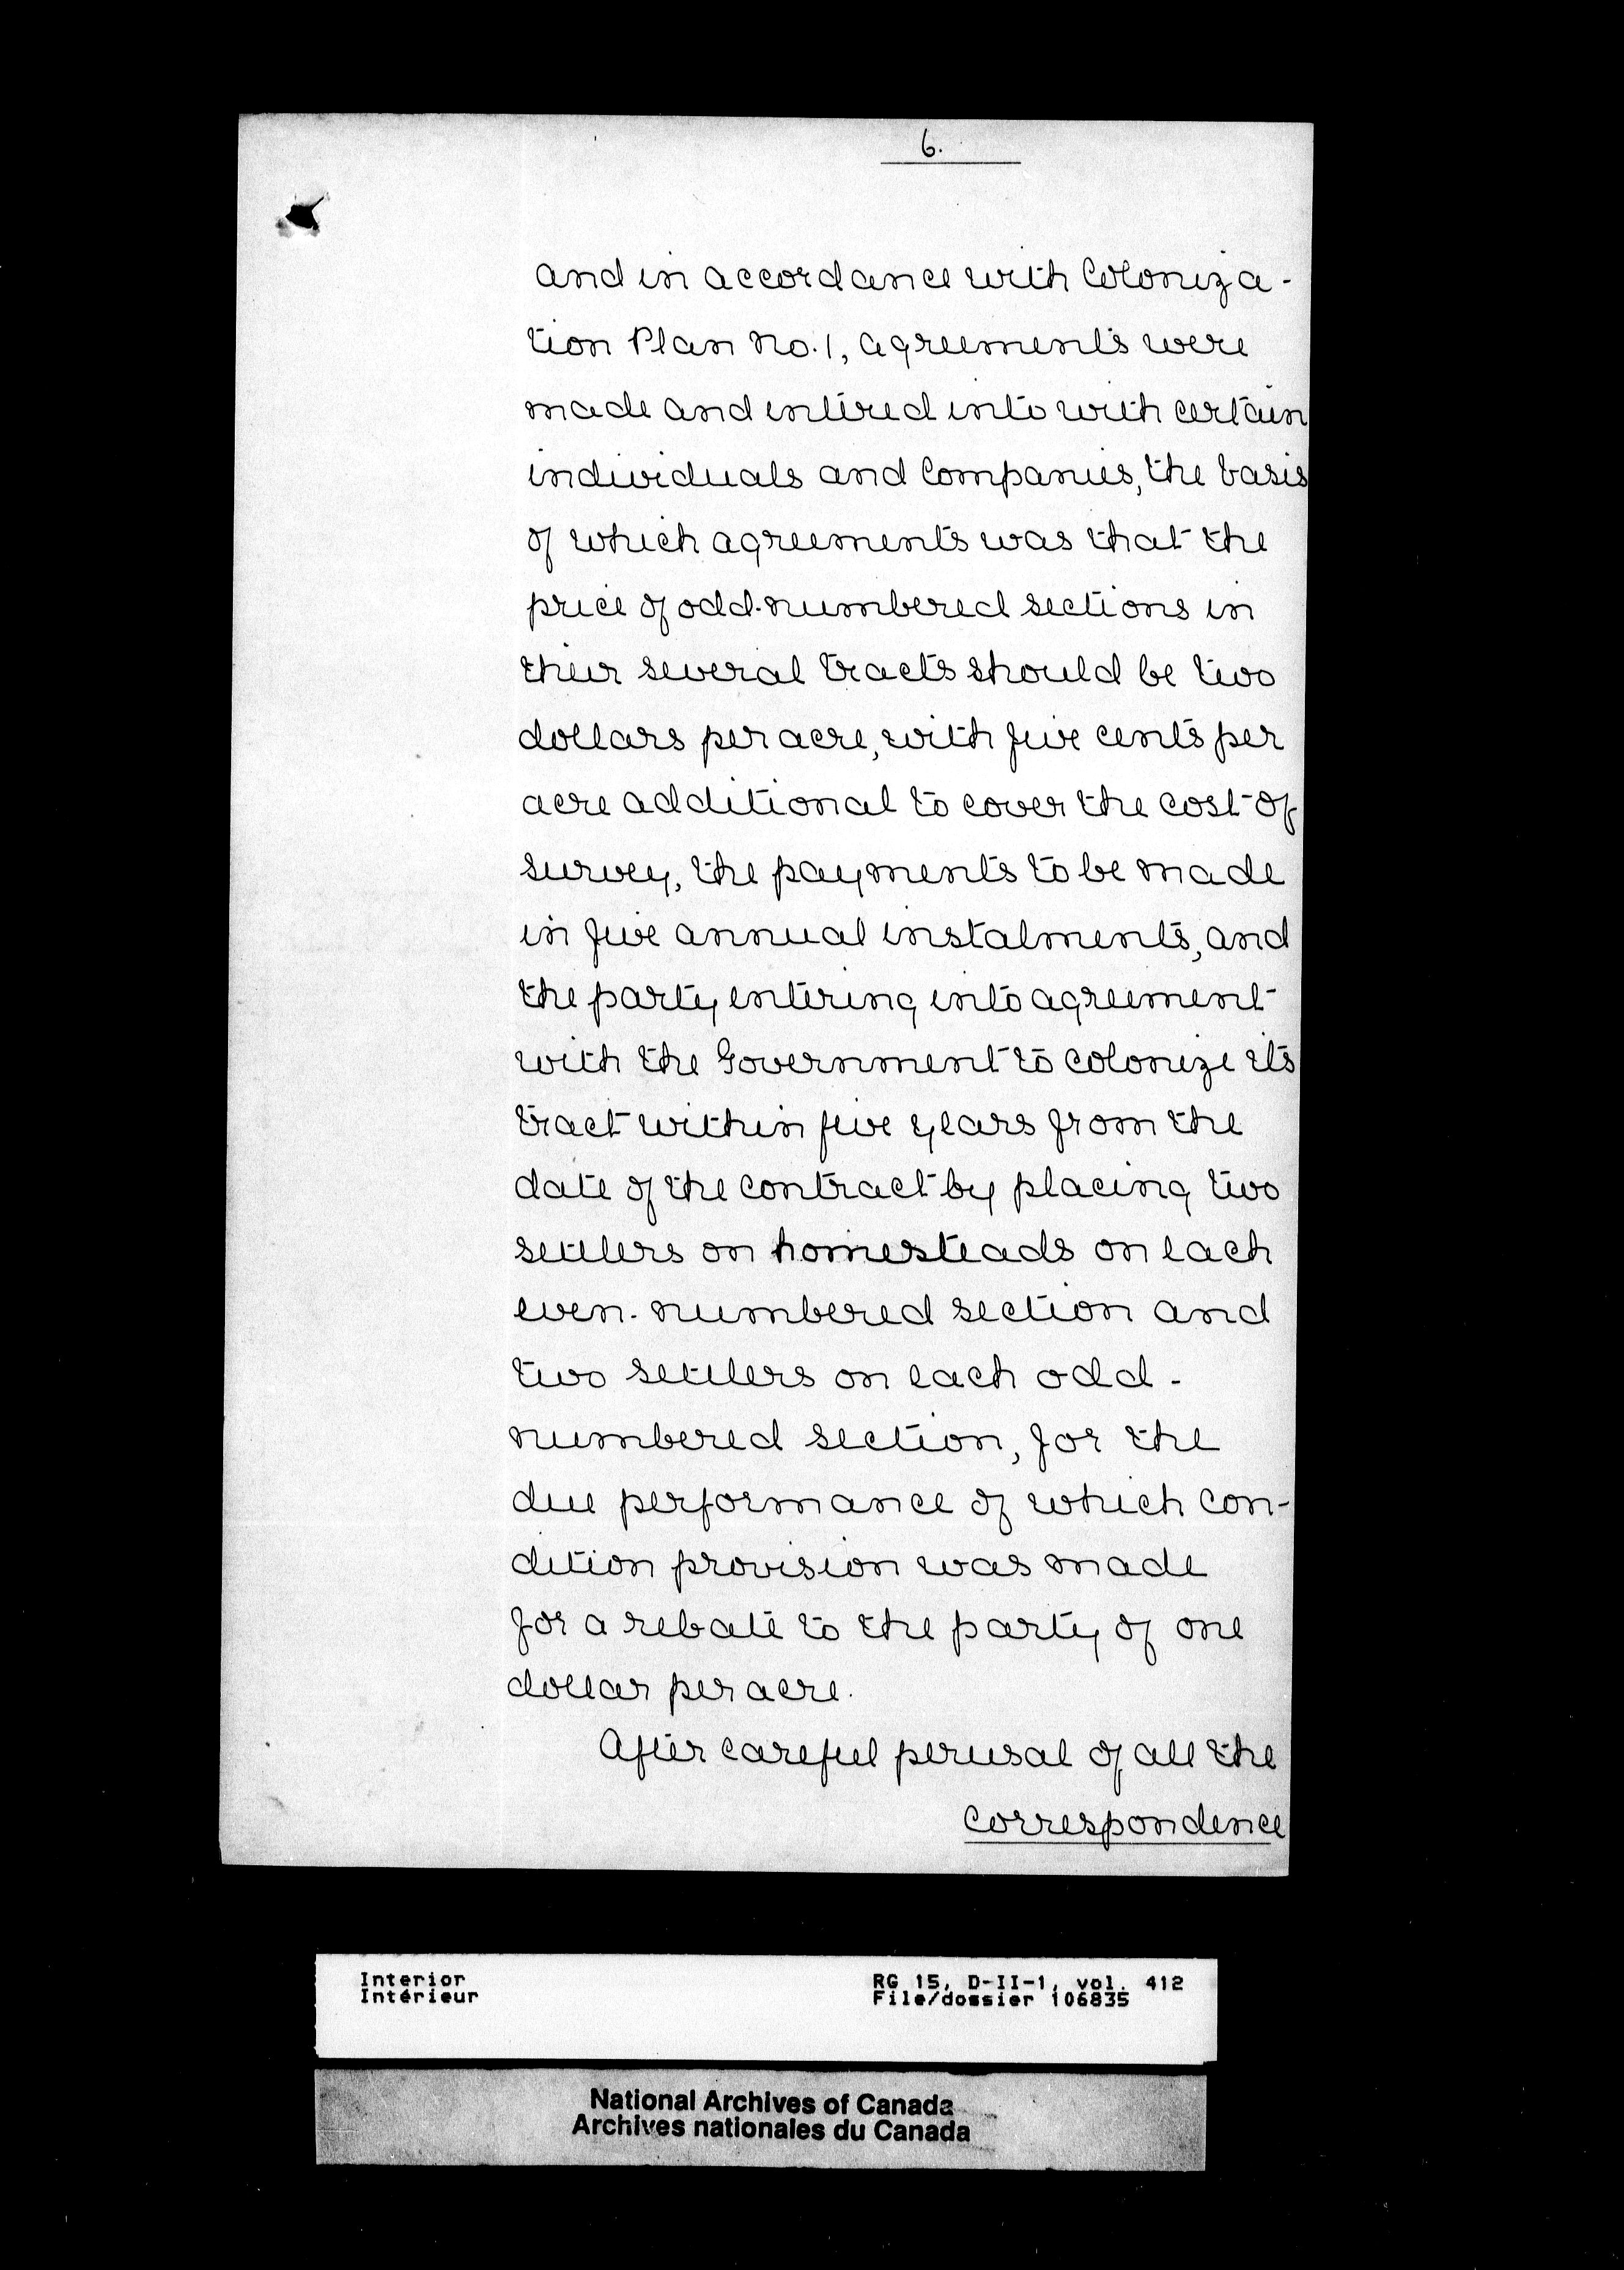 6.
and in accordance with Coloniza-
tion Plan No. 1, agreements were
made and entered into with certain
individuals and Companies, the basis
of which agreements was that the
price of odd-numbered sections in
their several tracts should be two
dollars per acre, with five cents per
acre additional to cover the cost of
survey, the payments to be made
in five annual instalments, and
the party entering into agreement
with the Government to colonize its
tract within five years from the
date of the contract by placing two
settlers on homesteads on each
even-numbered section and
two settlers on each odd-
numbered section, for the
due performance of which con-
dition provision was made
for a rebate to the party of one
dollar per acre.
After careful perusal of all the
correspondence
Interior RG 15, D-II-1, vol. 412
Intérieur File/dossier 106835
National Archives of Canada
Archives nationales du Canada